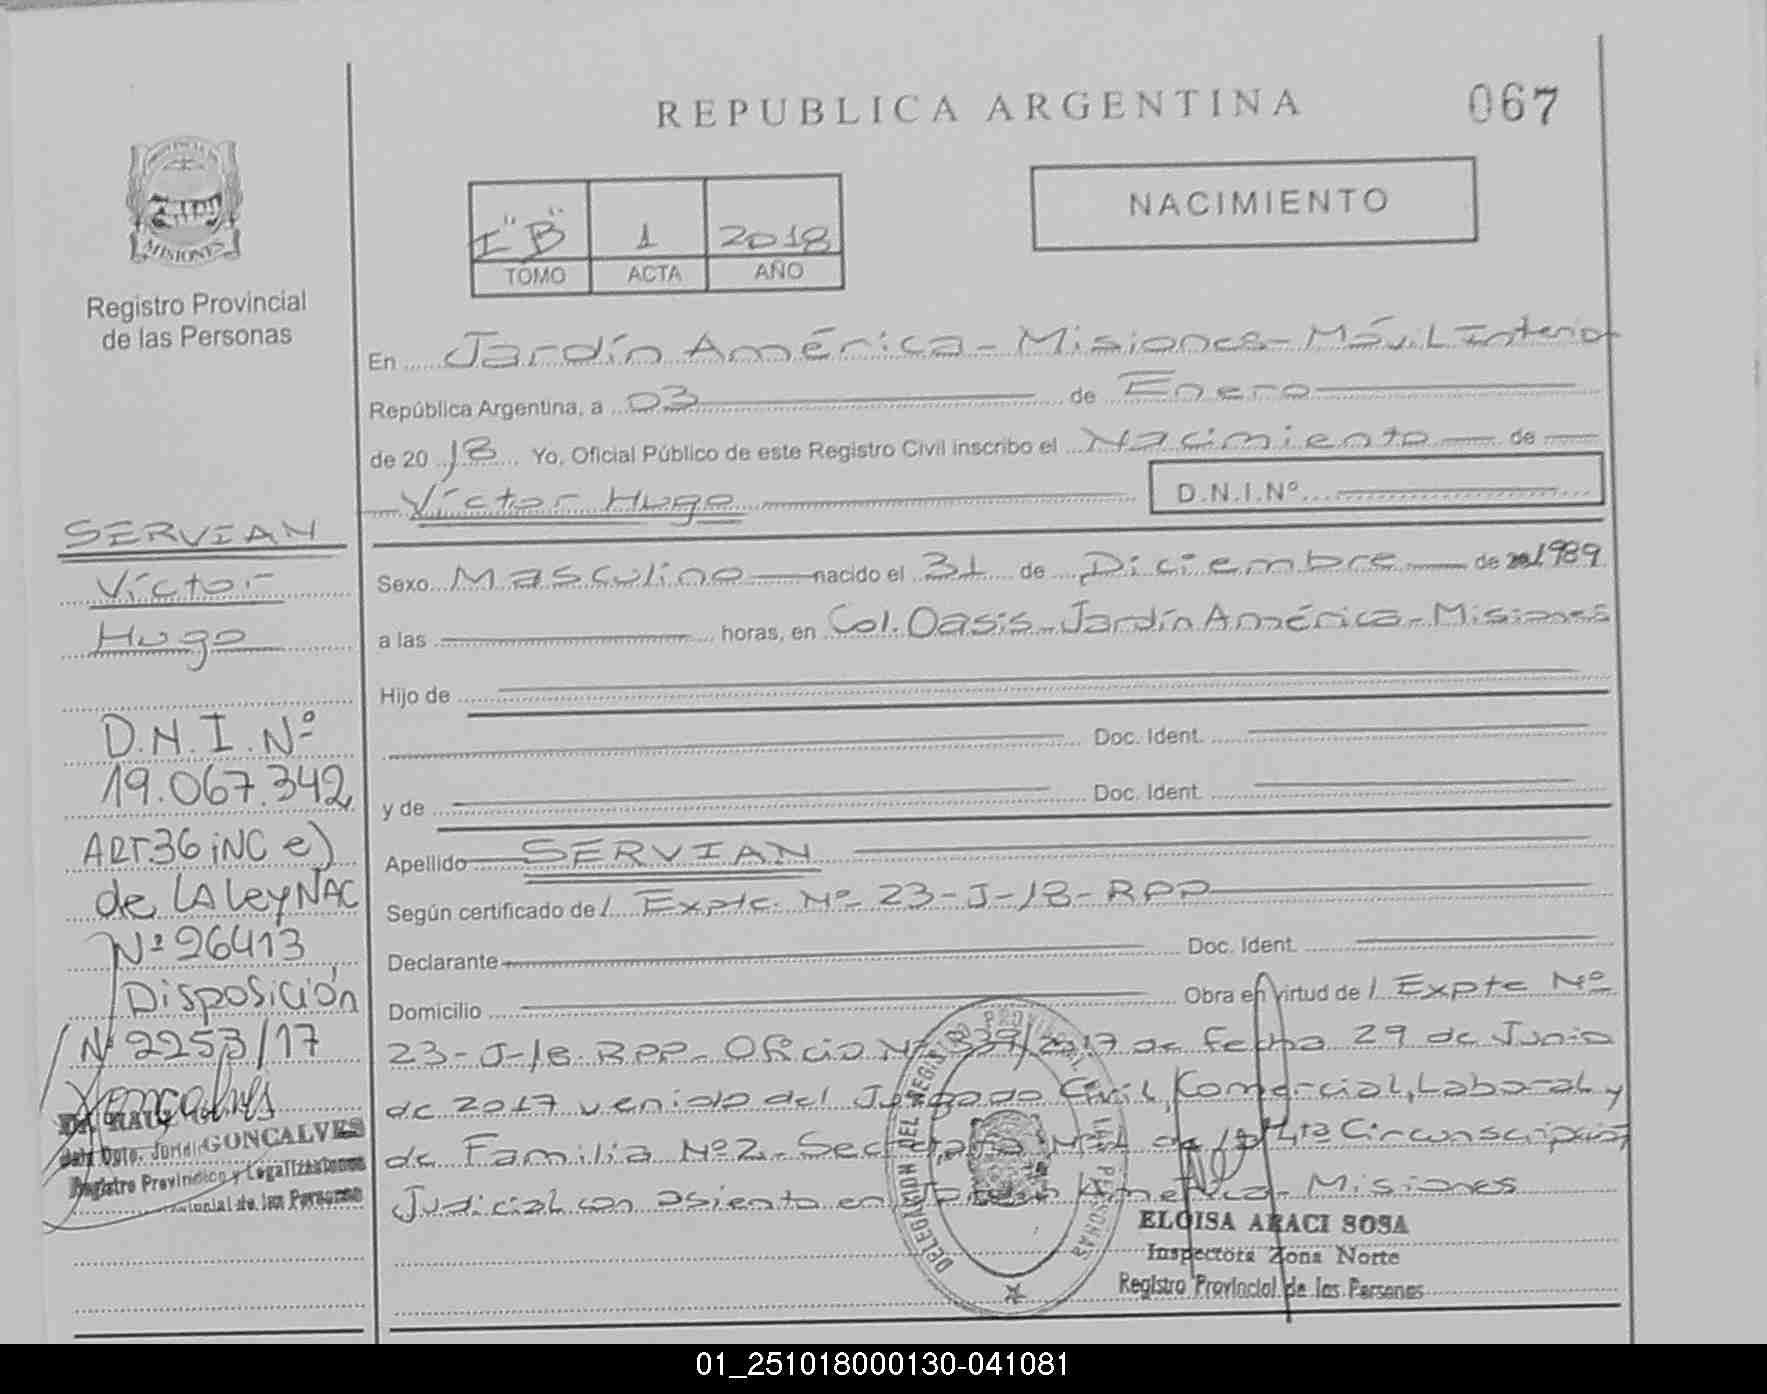 REPUBLICA ARGENTINA
067
PROVINCIA DE
MISIONES
Registro Provincial
de las Personas
I "B" 1 2018
TOMO ACTA AÑO
NACIMIENTO
En Jardín América - Misiones - Móvil Interior
República Argentina, a 03 de Enero
de 20 18 Yo, Oficial Público de este Registro Civil inscribo el Nacimiento de
Víctor Hugo D.N.I.Nº
Sexo Masculino nacido el 31 de Diciembre de 1989
a las horas, en Col. Oasis - Jardín América - Misiones
Hijo de
Doc. Ident.
y de Doc. Ident.
Apellido SERVIAN
Según certificado de / Expte. Nº 23-J-18-RPP
Declarante Doc. Ident.
Domicilio Obra en virtud de / Expte Nº
23-J-18-RPP- Oficio Nº 339/2017 de fecha 29 de Junio
de 2017 venido del Juzgado Civil, Comercial, Laboral y
de Familia Nº2- Secretaría Nº de la 4ta Circunscripción
Judicial con asiento en Jardín América - Misiones
ELOISA ARACI SOSA
Inspectora Zona Norte
Registro Provincial de las Personas
DELEGACION DEL REGISTRO PROVINCIAL DE LAS PERSONAS
SERVIAN
Víctor
Hugo
D.N.I.Nº
19.067.342
ART.36 iNC e)
de LA Ley NAC
Nº 26413
Disposición
Nº 2253/17
GONCALVES
Registro Provincial de las Personas
01_251018000130-041081